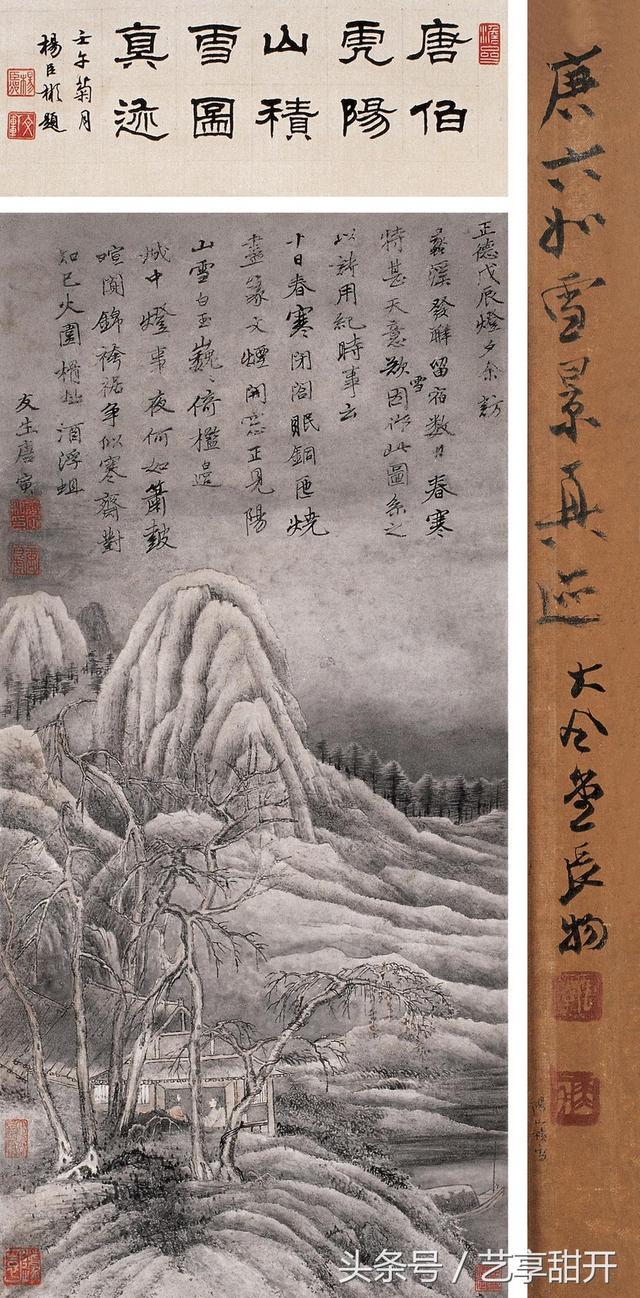 唐伯
虎陽
山積
雪圖
真迹
壬午菊月
楊臣彬題
唐六如雪景真迹 大风堂長物
陽山積雪
正德戊辰燈夕余訪
溪發留宿数日春寒
特甚天意欲雪因作此圖系之
以詩用紀時事云
十日春寒閉閤眠銅匜燒
盡篆文煙開窓正見陽
山雪白玉巍〻倚檻邉
城中燈事夜何如簫鼓
喧闐錦袴裾争似寒齋對
知己火圍榾柮酒浮蛆
友生唐寅
头条号 / 艺享甜开